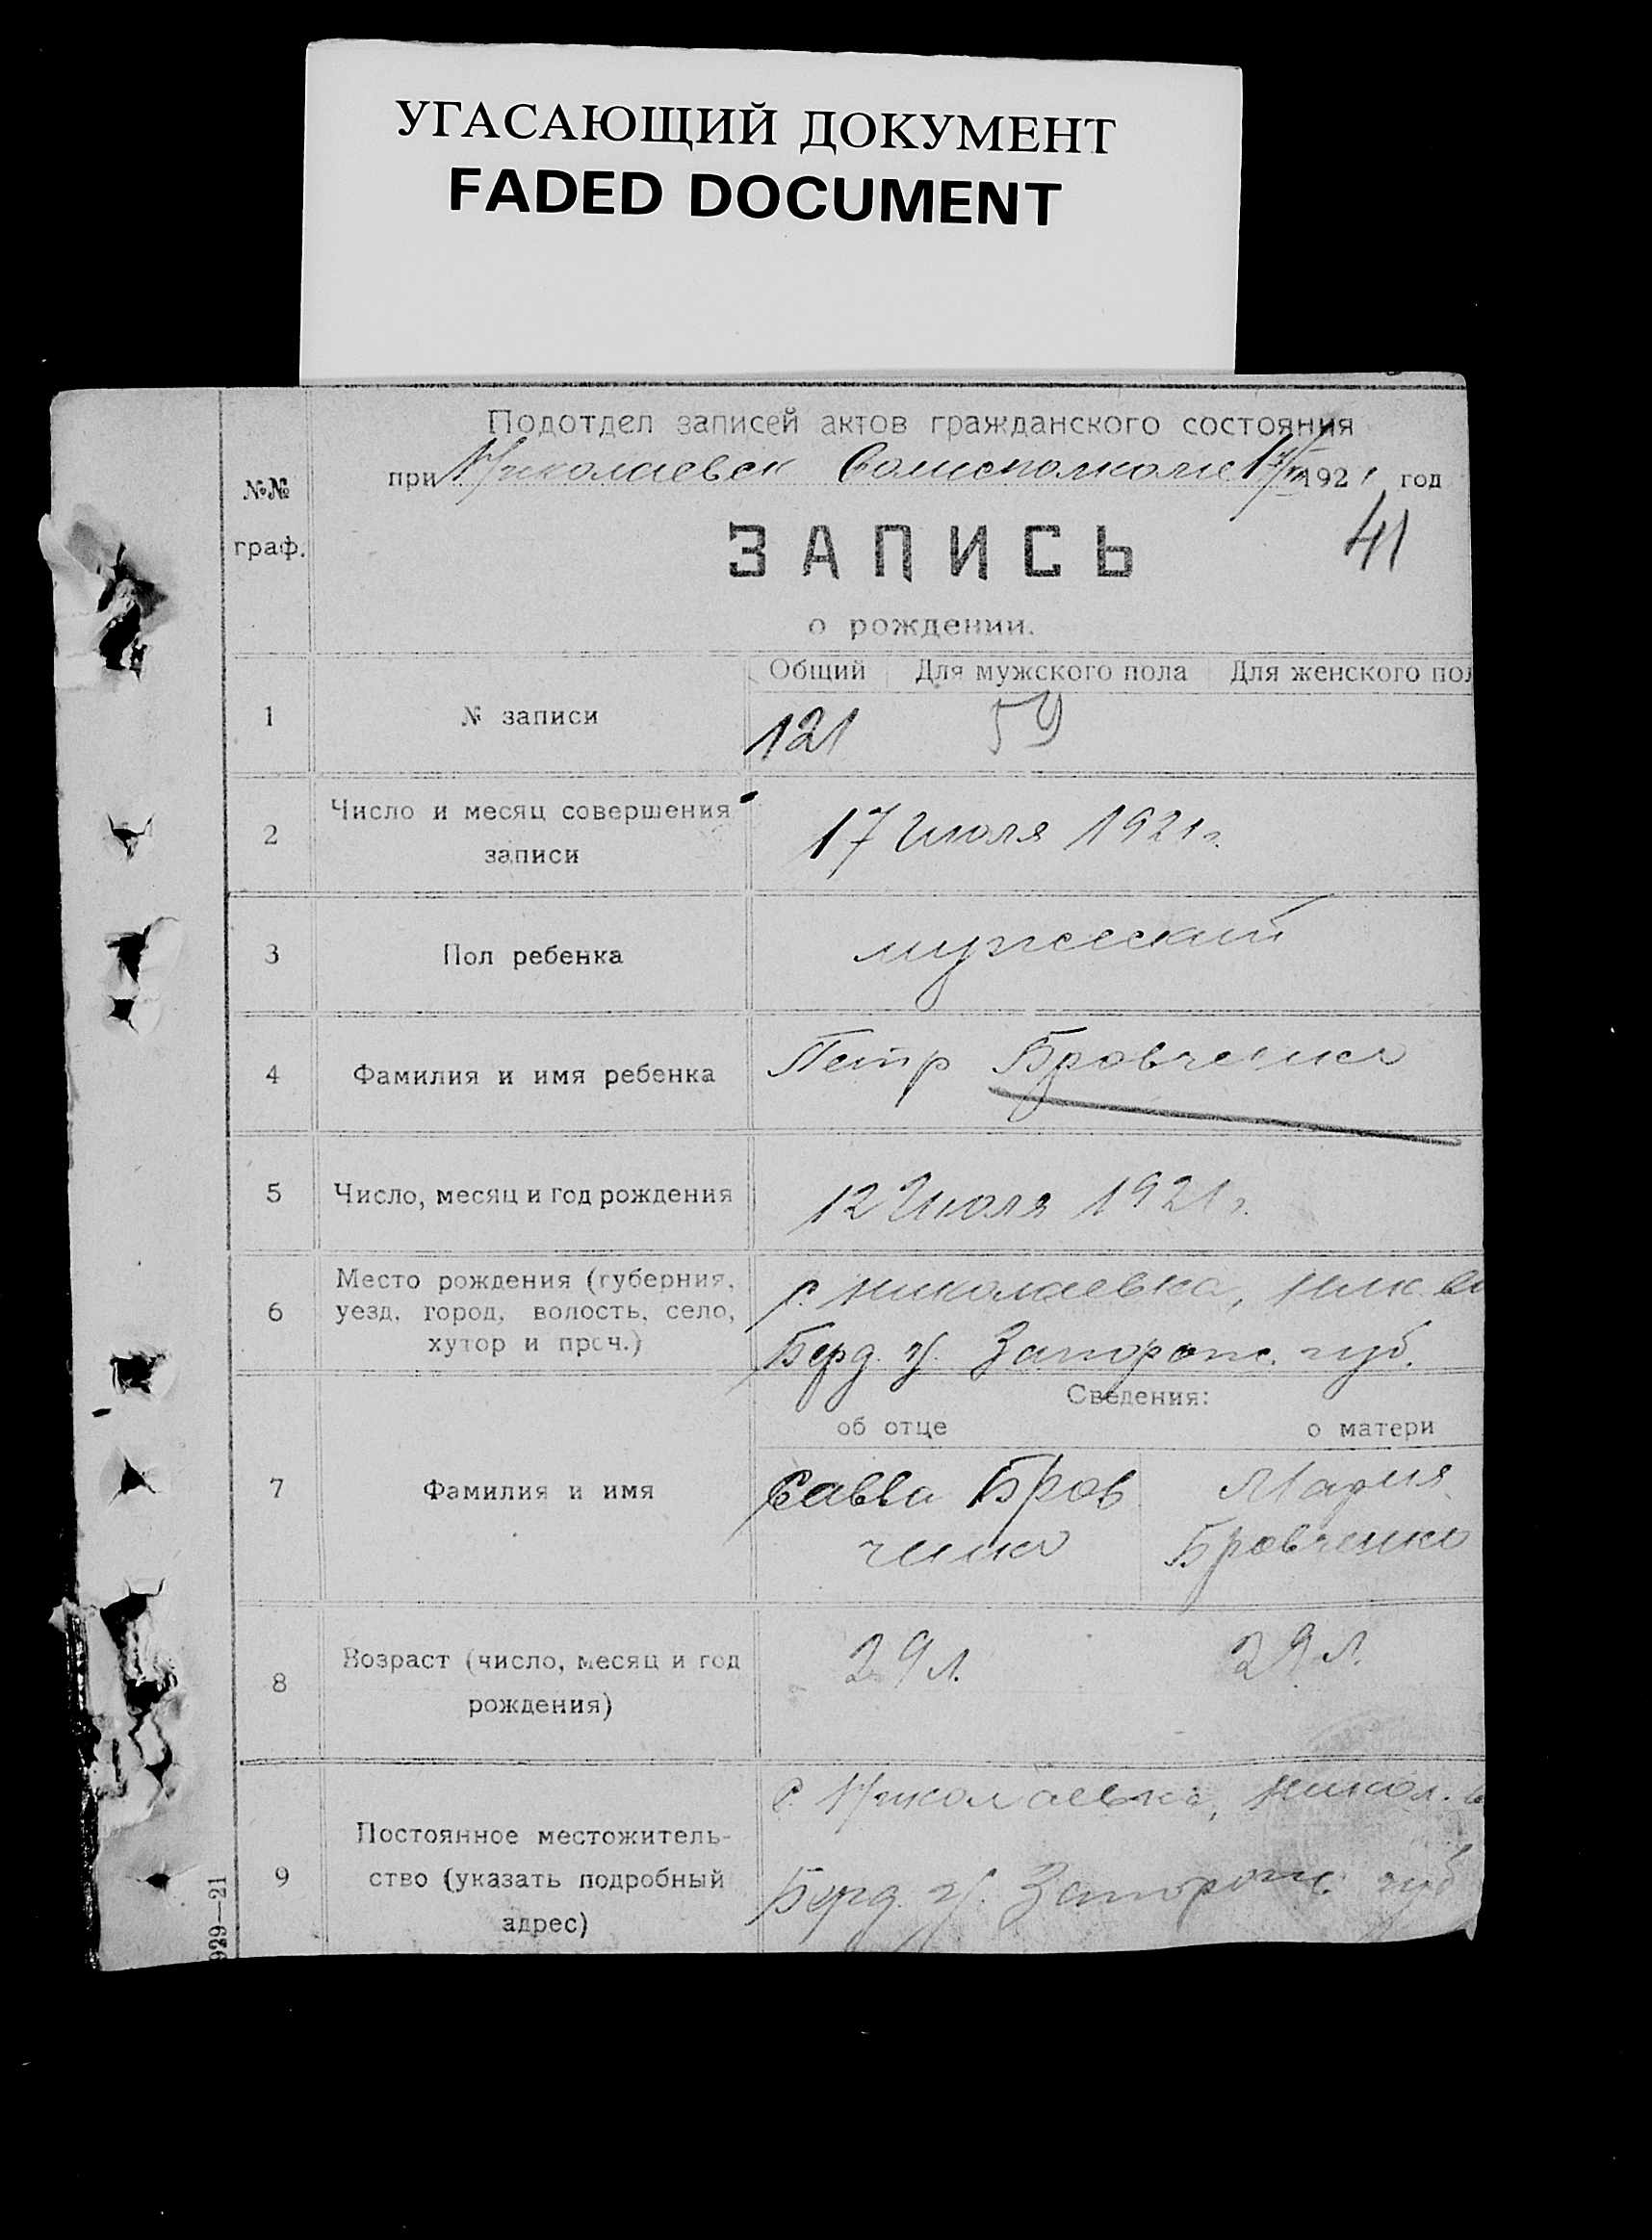 УГАСАЮЩИЙ ДОКУМЕНТ
FADED DOCUMENT
Подотдел записей актов гражданского состояния
№№ граф.
при Николаевск Волисполкоме 17/VII 1921 год
41
ЗАПИСЬ
о рождении.
Общий Для мужского пола Для женского пол
1 № записи 121 59
2 Число и месяц совершения записи 17 Июля 1921 г.
3 Пол ребенка мужеский
4 Фамилия и имя ребенка Петр Бровченко
5 Число, месяц и год рождения 12 Июля 1921 г.
6 Место рождения (губерния, уезд, город, волость, село, хутор и проч.) с. Николаевка, Ник. во
Берд. у. Запорож. губ.
Сведения:
об отце о матери
7 Фамилия и имя Савва Бров Мария
ченко Бровченко
8 Возраст (число, месяц и год рождения) 29 л. 29 л.
9 Постоянное местожитель-
ство (указать подробный
адрес)
с. Николаевка, Никол. в
Берд. у. Запорож. губ
929—21